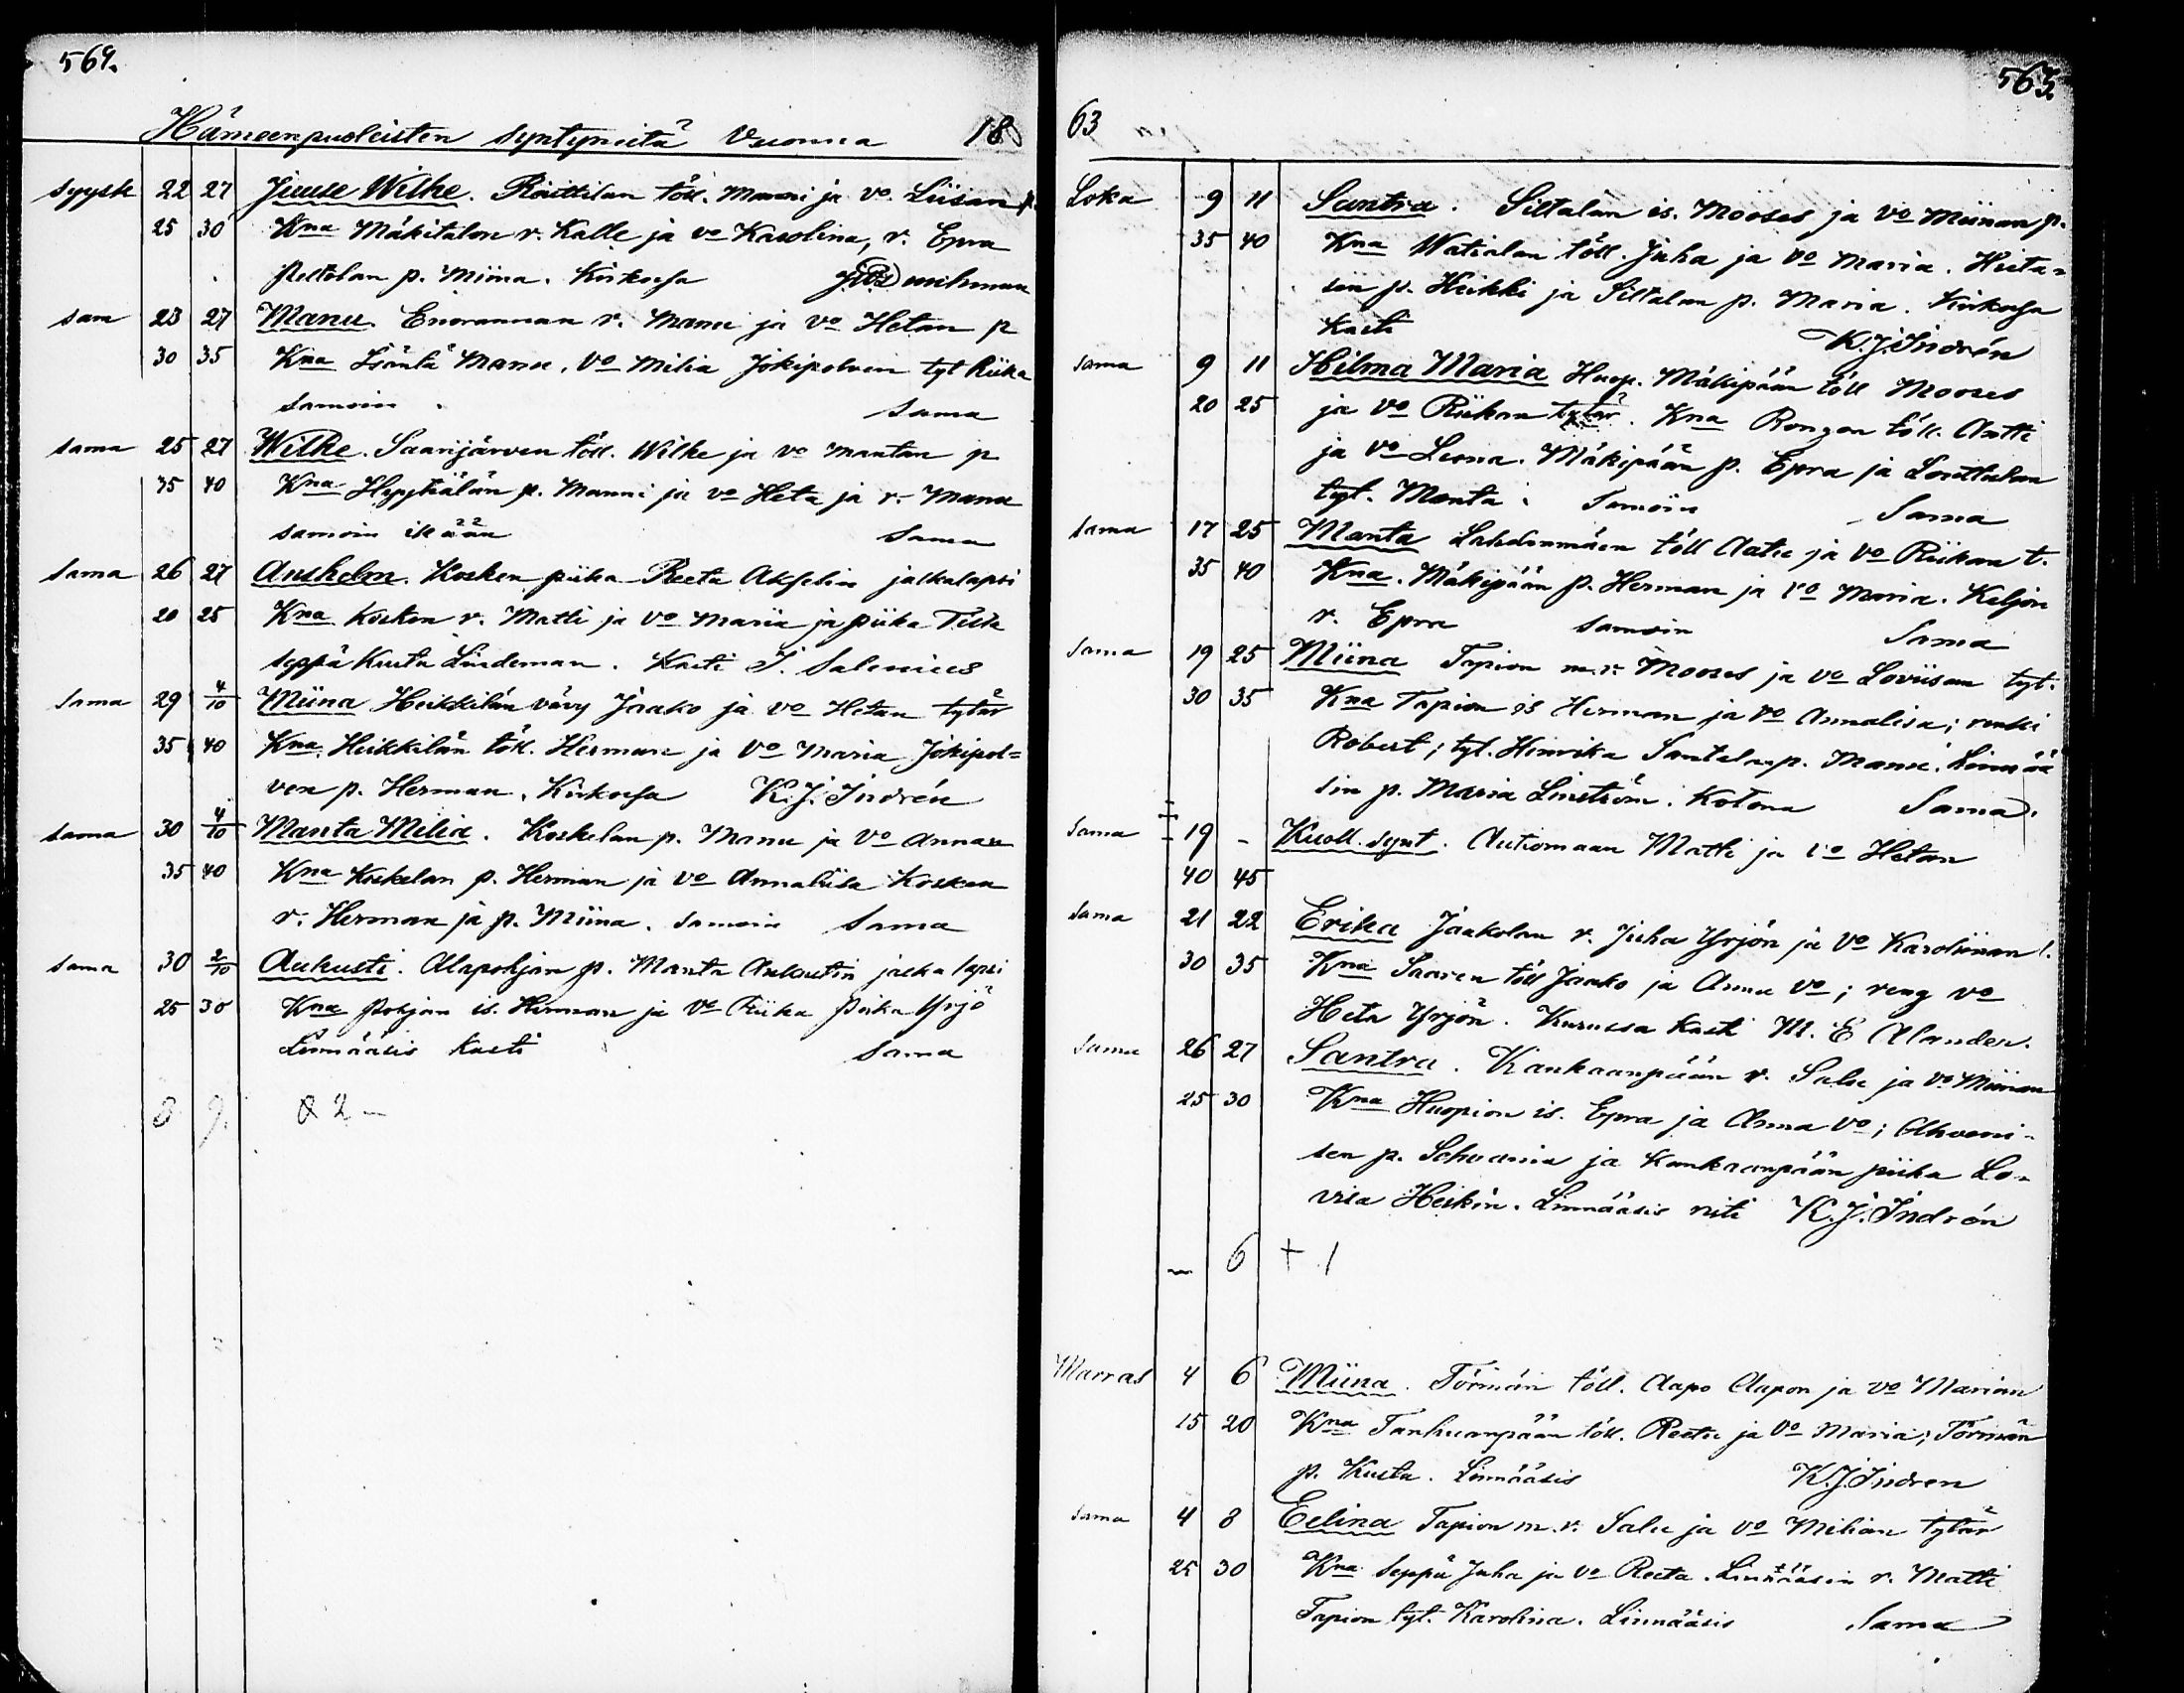 564.
Hämeenpuoleisten syntyneitä Vuonna 18
syysk 22 27 Juuse Wilhe. Raittilan töll. Manni ja vo. Liisan p.
25 30 Kna Mäkitalon r. Kalle ja vo Karolina, r. Epra
Peltolan p. Miina. Kirkossa
sam 23 27 Manu. Enorannan r. Manu ja vo Hetan p
30 35 Kna Isäntä Manu, vo Milia Jokipolven tyt Riika
samoin. Sama
sama 25 27 Wilhe. Saarijärven töll. Wilhe ja vo Mantan p
35 40 Kna Hepytiälän p. Manni ja vo Heta ja r. Manu
samoin ikään Sama
sama 26 27 Anshelm. Kosken piika Reeta Akselin jalkalapsi
20 25 Kna Kosken r. Matti ja vo Maria ja piika Tilta
seppä Kusta Lindeman. Kasti I. Salenius
sama 29 4/10 Miina Heikkilän vävy Jaako ja vo Hetan tytär
35 40 Kna Heikkilän töll. Herman ja vo Maria Jokipol=
ven p. Herman. Kirkossa K. J. Indrén
sama 30 4/10 Manta Milia. Koskelan p. Manu ja vo Annan
35 40 Kna Koskelan p. Herman ja vo Annaliisa Kosken
r. Herman ja p. Miina. samoin Sama
sama 30 2/10 Aukusti. Alapohjan p. Manta Aukustin jalka lapsi
25 30 Kna Pohjan is. Herman ja vo Riika Piika Yrjö
Linnääsis kasti Sama
8 9. & 2 -
565.
63
Loka 9 11 Santra. Siltalan is. Mooses ja vo Miinan p.
35 40 Kna Watialan töll. Juha ja vo Maria. Huta=
sin p. Heikki ja Siltalan p. Maria. Kirkossa
kasti K. J. Indrén
sama 9 11 Hilma Maria Huop. Mäkipään töll Mooses
20 25 ja vo Riikan tytär. Kna Rongon töll. Antti
ja vo Leena. Mäkipään p. Epra ja Lonttalan
tyt. Manta. Samoin Sama
sama 17 25 Manta Lahdenmäen töll Aatu ja vo Riikan t.
35 40 Kna. Mäkipään p. Herman ja vo Maria. Keljon
r. Epra samoin Sama
sama 19 25 Miina Tapion m.r. Mooses ja vo Loviisan tyt.
30 35 Kna Tapion is Herman ja vo Annaliisa; renki
Robert; tyt. Henrika Santalan p. Manu. Linnää
sin p. Maria Linström. Kotona Sama.
sama 19 - Kuoll. synt. Autiomaan Matti ja vo Hetan
40 45
sama 21 22 Erika Jaakolan r. Juha Yrjön ja vo Karoliinan t.
30 35 Kna Saaren töll Jaako ja Anna vo; reng vo
Heta Yrjön. Kurussa kasti M. E Alander.
sama 26 27 Santra. Kankaanpään r. Salu ja vo Miinan
25 30 Kna Huopion is. Epra ja Anna vo; Ahveni-
sen p. Schuania ja Kankaanpään piika Lo-
visa Heikin. Linnääsis risti K. J. Indrén
6 + 1
Marras 4 6 Miina. Törmän töll. Aapo Aapon ja vo Marian
15 20 Kna Tanhuanpään töll. Reetu ja vo Maria; Törmän
p. Kusta. Linnääsis K. J. Indren
sama 4 8 Eelina Tapion m.r. Salu ja vo Milian tytär
25 30 Kna seppä Juha ja vo Reeta. Linnääsin r. Matti
Tapion tyt. Karolina. Linnääsis Sama